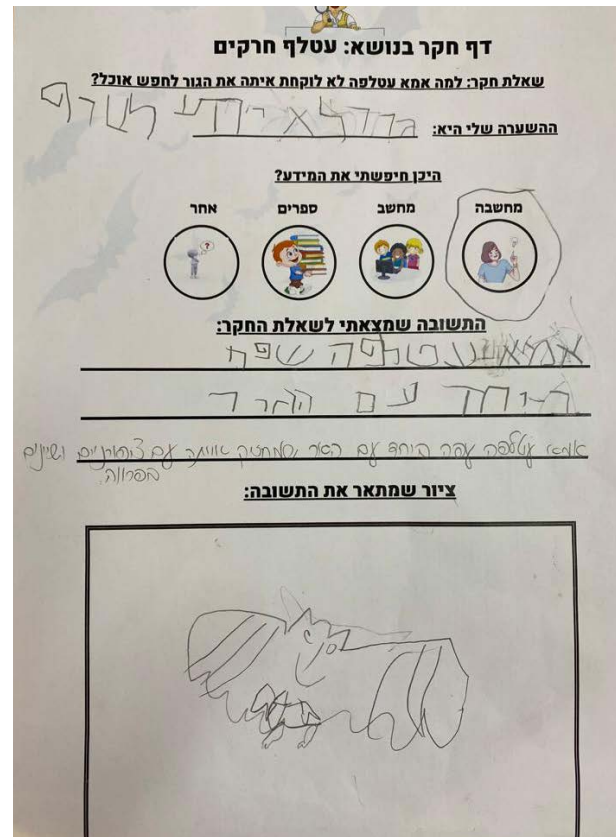 דף חקר בנושא: עטלף חרקים
שאלת חקר: למה אמא עטלפה לא לוקחת איתה את הגור לחפש אוכל?
ההשערה שלי היא: לא יודע
היכן חיפשתי את המידע?
מחשבה מחשב ספרים אחר
התשובה שמצאתי לשאלת החקר:
אמא עטלפה
עם
אמא עטלפה עפה ביחד עם הגור עם ושיניים
בפרווה.
ציור שמתאר את התשובה: